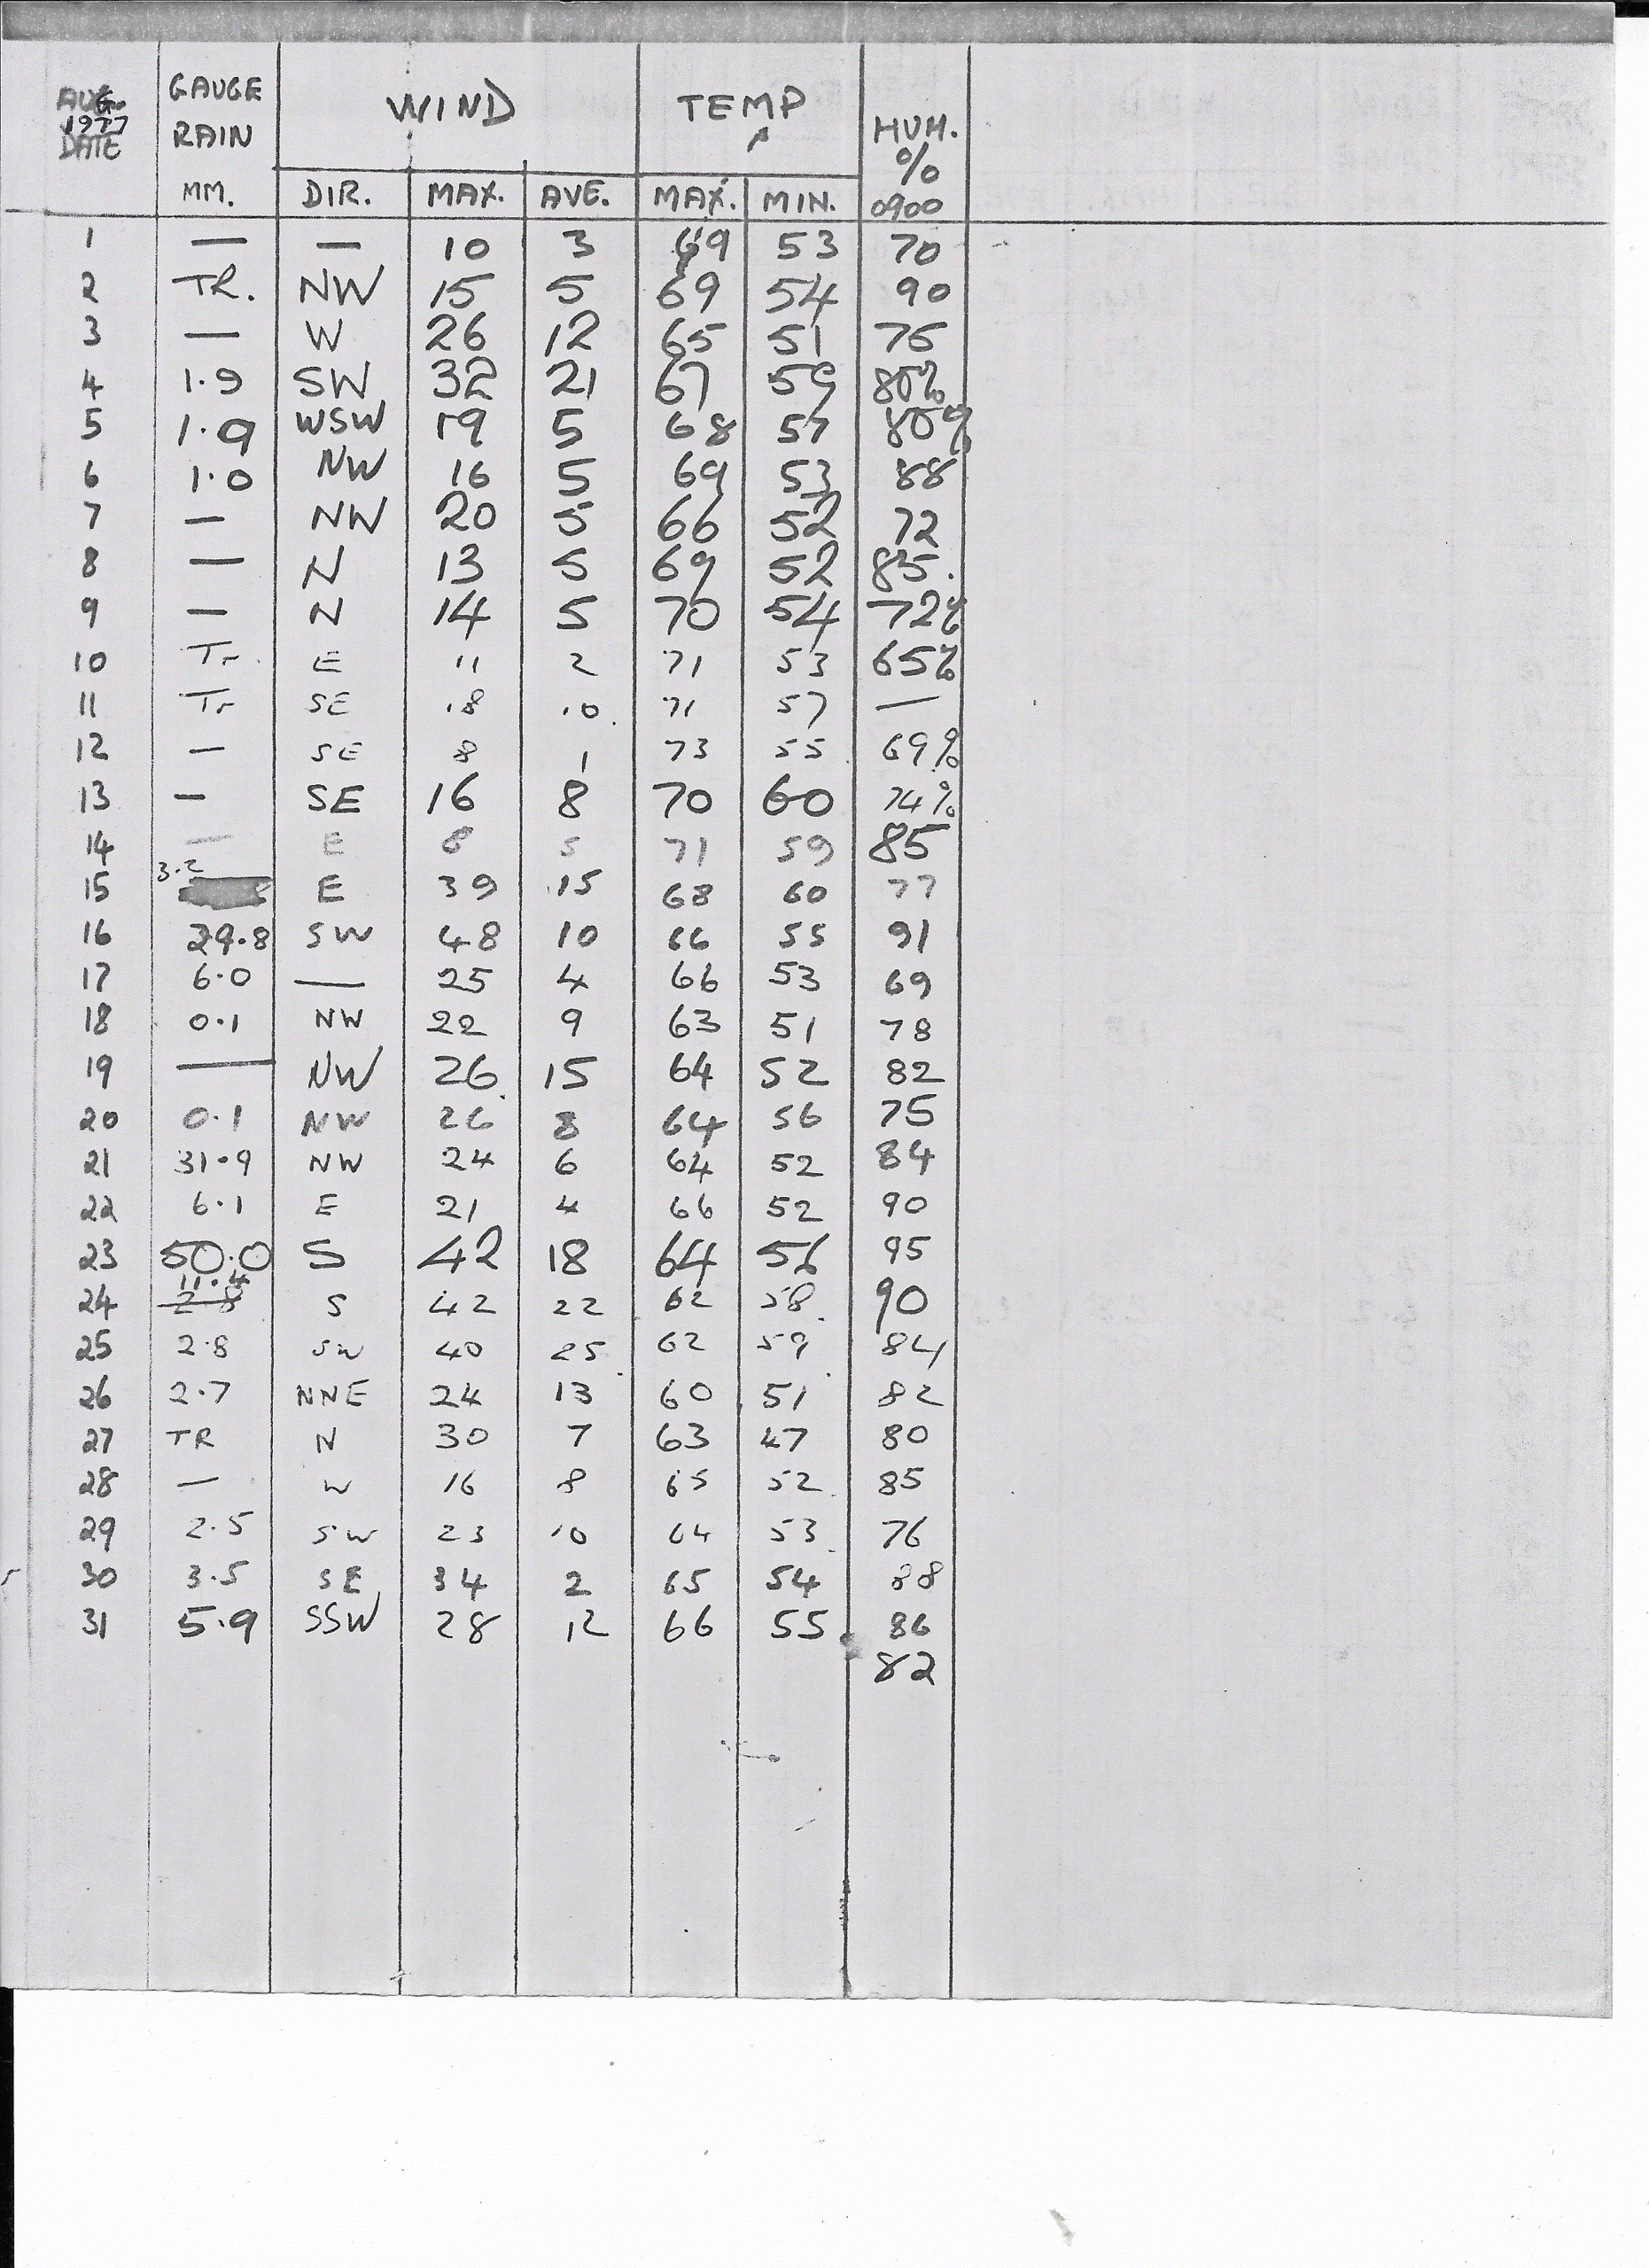 AUG. 1977 DATE GAUGE RAIN MM. WIND TEMP HUM. % 0900
DIR. MAX. AVE. MAX. MIN.
1 — — 10 3 69 53 70
2 TR. NW 15 5 69 54 90
3 — W 26 12 65 51 76
4 1.9 SW 32 21 67 59 80%
5 1.9 WSW 19 5 68 57 80%
6 1.0 NW 16 5 69 53 88
7 — NW 20 5 66 52 72
8 — N 13 5 69 52 85.
9 — N 14 5 70 54 72%
10 Tr. E 11 2 71 53 65%
11 Tr SE 18 10 71 57 —
12 — SE 8 1 73 55 69%
13 — SE 16 8 70 60 74%
14 — E 8 5 71 59 85
15 3.2 E 39 15 68 60 77
16 29.8 SW 48 10 66 55 91
17 6.0 — 25 4 66 53 69
18 0.1 NW 22 9 63 51 78
19 — NW 26 15 64 52 82
20 0.1 NW 26 8 64 56 75
21 31.9 NW 24 6 64 52 84
22 6.1 E 21 4 66 52 90
23 50.0 S 42 18 64 56 95
24 11.4 S 42 22 62 58 90
25 2.8 SW 40 25 62 59 84
26 2.7 NNE 24 13 60 51 82
27 TR N 30 7 63 47 80
28 — W 16 8 65 52 85
29 2.5 SW 23 10 64 53 76
30 3.5 SE 34 2 65 54 88
31 5.9 SSW 28 12 66 55 86
82